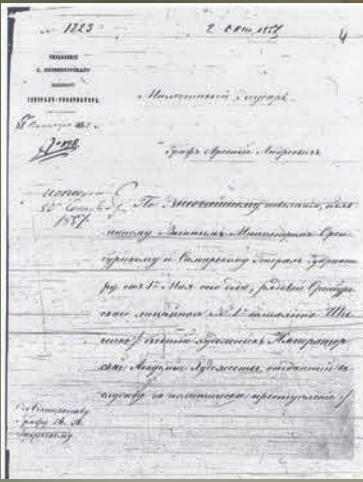 № 1223
2 Окт. 1857
4
УПРАВЛЕНИЕ
С. ПЕТЕРБУРГСКАГО
ВОЕННАГО
ГЕНЕРАЛЪ-ГУБЕРНАТОРА.
Милостивый Государь
Графъ Арсеній Андреевичъ
1857.
По Высочайшему повелѣнію,
Военнымъ Министромъ Орен-
бургскому и Самарскому Генералъ Губерна-
тору отъ 1го Мая сего года, рядовой Оренбург-
скаго линейнаго № 1го баталіона Шев-
ченко, бывшій художникъ Император-
ской Академіи Художествъ, отданный въ
службу за политическое преступленіе
Его Сіятельству
Графу А. А.
Закревскому